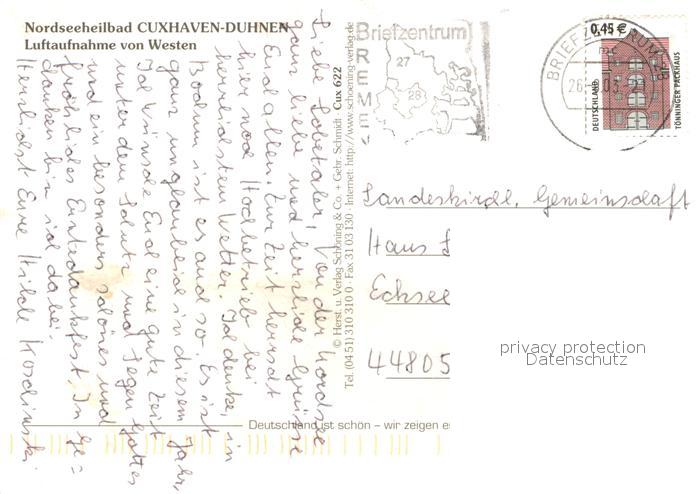 Nordseeheilbad CUXHAVEN-DUHNEN
Luftaufnahme von Westen
Liebe Lobetaler, von der Nordsee
ganz liebe und herzliche Grüsse
Euch allen. Zur Zeit herrscht
hier noch Hochbetrieb bei
herrlichstem Wetter. Ich denke, in
Bochum ist es auch so. Es ist
ganz unglaublich in diesem Jahr,
Ich wünsche Euch eine gute Zeit
unter dem Schutz und Segen Gottes
und ein besonders schönes und
fröhliches Erntedankfest. In Ge=
danken bin ich dabei.
Herzlichst Eure Hilde
© Herst. u. Verlag Schöning & Co. + Gebr. Schmidt · Cux 622
Tel. (04 51) 310 310 0 · Fax 31 03 130 · Internet: http://www.schoening-verlag.de
Briefzentrum
BREMEN
27
28
BRIEFZENTRUM 28
mc
0,45 €
DEUTSCHLAND
TÖNNINGER PACKHAUS
Landeskirchl. Gemeinschaft
Haus
Ecksee
44805
privacy protection
Datenschutz
Deutschland ist schön – wir zeigen e